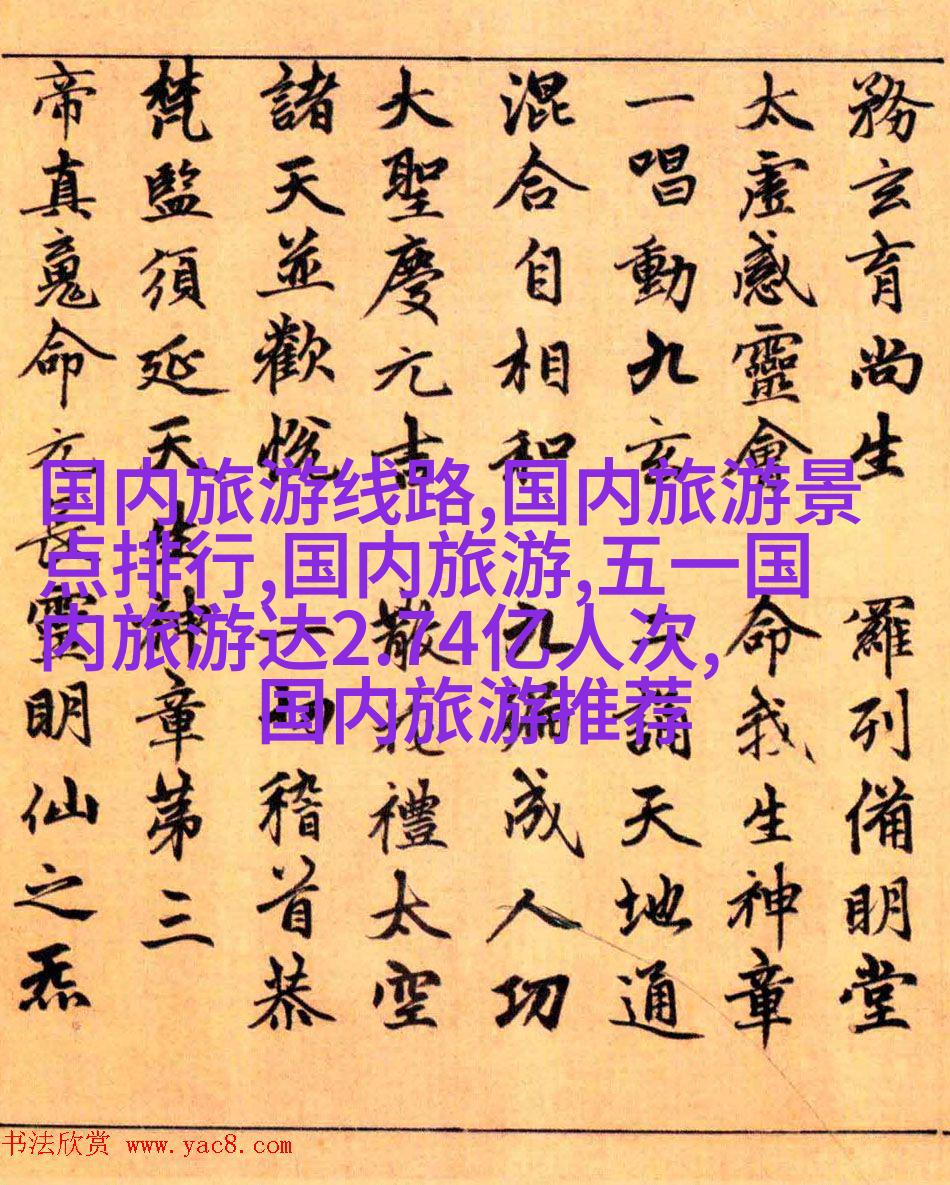 務玄育尚生 羅列備明堂
太虛感靈會 命我生神章
一唱動九玄 二誦天地通
混合自相和 九遍成人功
大聖慶元吉 散花禮太空
諸天並歡悅 一 稽首恭
梵監須延天生神章第三
帝真 命元長靈明仙之炁
国内旅游线路,国内旅游景
点排行,国内旅游,五一国
内旅游达2.74亿人次,
国内旅游推荐
书法欣赏 www.yac8.com